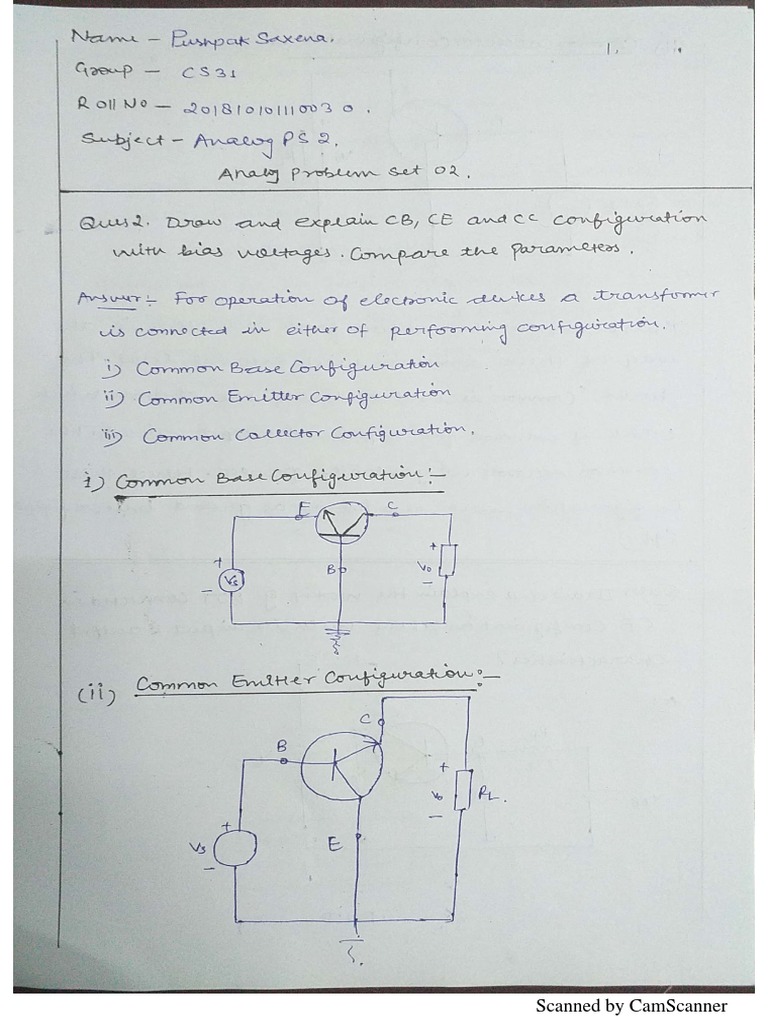 Name - Pushpak Saxena.
1.
Group - CS31
Roll No - 201810101110030.
Subject - Analog PS 2.
Analog Problem Set 02.
Ques 2. Draw and explain CB, CE and CC configuration
with bias voltages. Compare the parameters.
Answer:- For operation of electronic devices a transformer
is connected in either of performing configuration.
i) Common Base Configuration
ii) Common Emitter Configuration
iii) Common Collector Configuration.
i) Common Base Configuration:-
E C
+ Vs -
B
+ Vo -
(ii) Common Emitter Configuration:-
C
B
+ Vs -
E
+ Vo -
RL.
Scanned by CamScanner